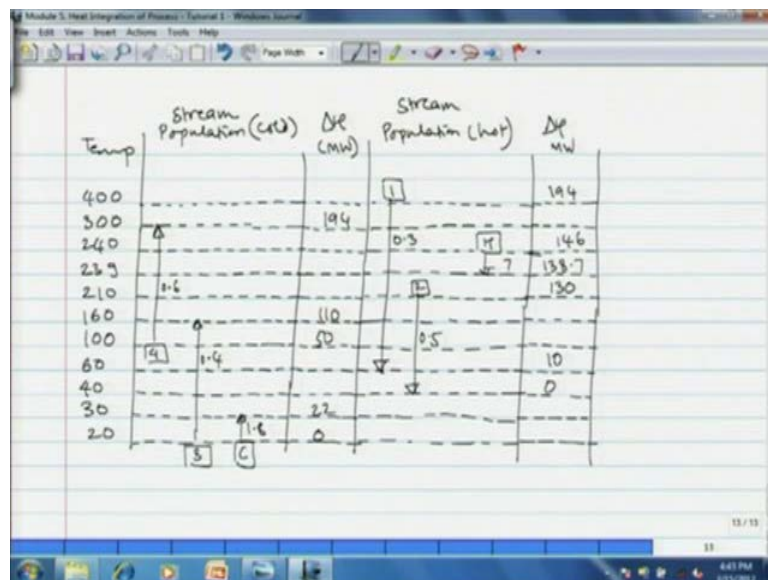 Module 5. Heat Integration of Process - Tutorial 1 - Windows Journal
File Edit View Insert Actions Tools Help
Page Width
Temp Stream Population (cold) ΔH (MW) Stream Population (hot) ΔH MW
400 1 194
300 194
240 0.3 H 146
239 7 138.7
210 0.6 130
160 110
100 50 0.5
4 0.4 10
60
40 0
30 22
1.8
20 0
3 C
13 / 13
4:41 PM